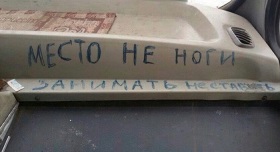 МЕСТО НЕ НОГИ
ЗАНИМАТЬ